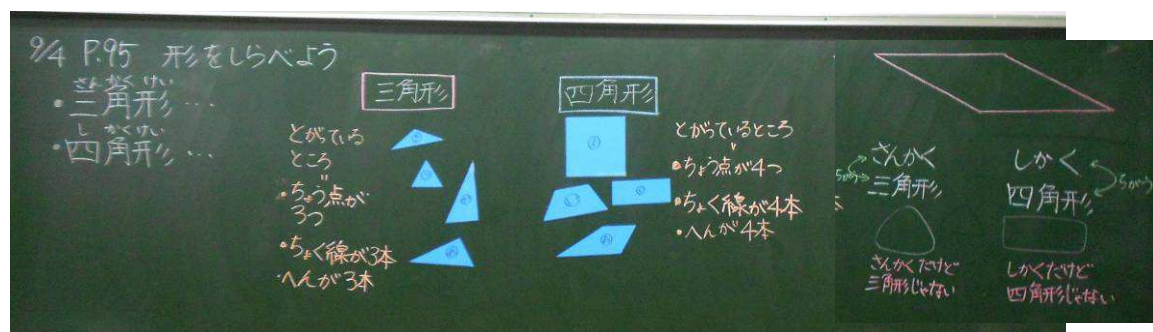 9/4 P.95 形をしらべよう
さんかくけい
・三角形…
しかくけい
・四角形…
三角形
とがっている
ところ
"
・ちょう点が
3つ
・ちょく線が3本
・へんが3本
四角形
とがっているところ
・ちょう点が4つ
・ちょく線が4本
・へんが4本
さんかく
三角形
ちがう
さんかくだけど
三角形じゃない
しかく
四角形
ちがう
しかくだけど
四角形じゃない